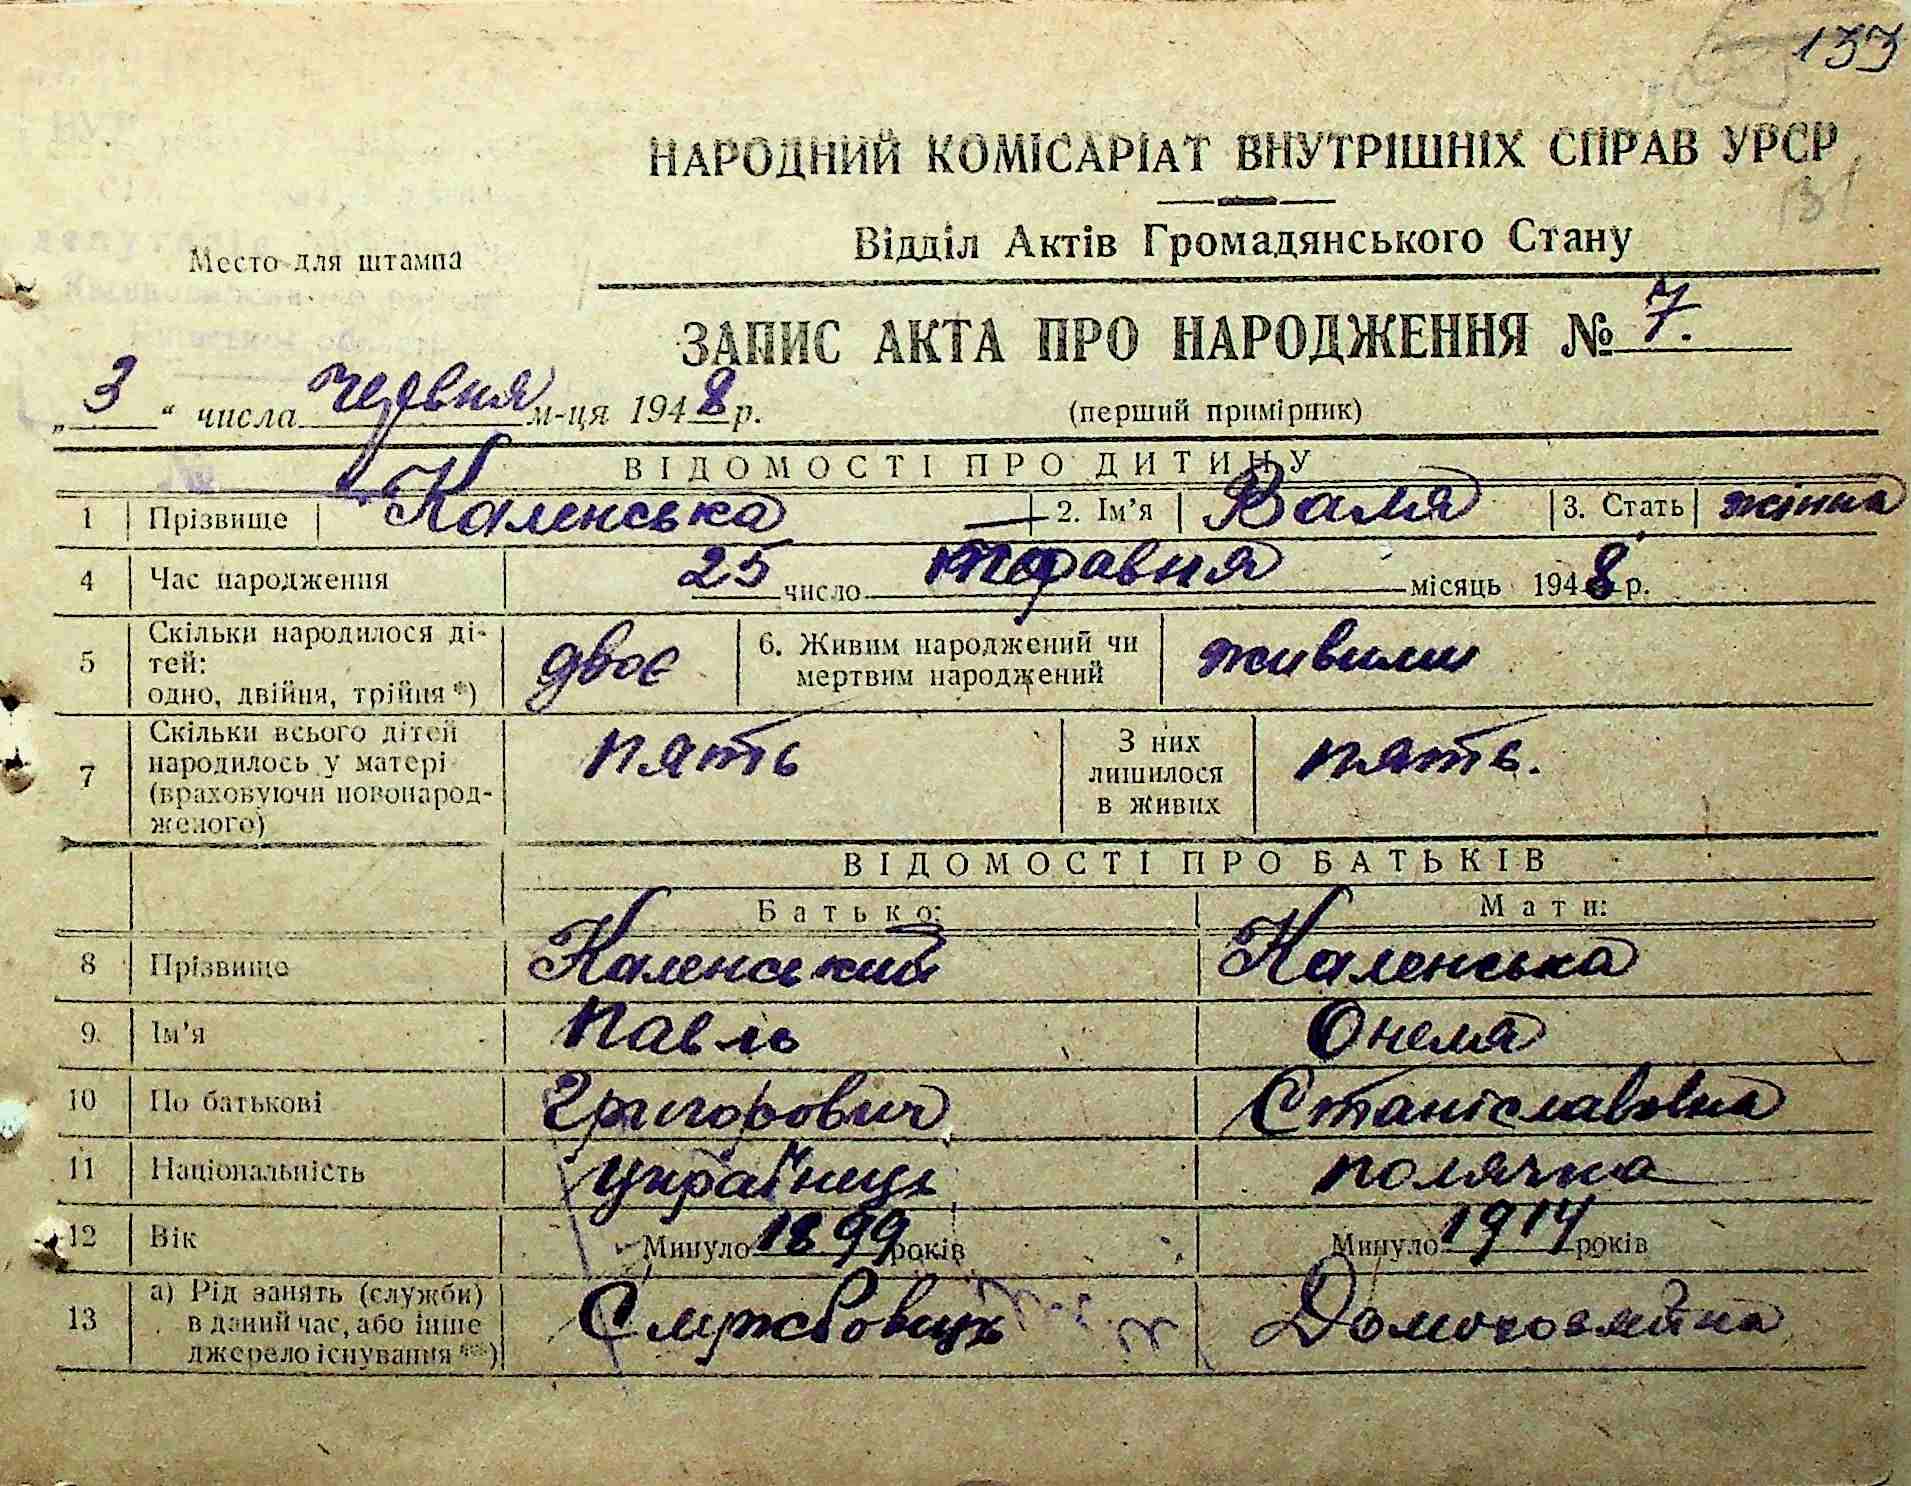 133
НАРОДНИЙ КОМІСАРІАТ ВНУТРІШНІХ СПРАВ УРСР
131
Відділ Актів Громадянського Стану
Место для штампа
ЗАПИС АКТА ПРО НАРОДЖЕННЯ № 7.
„3“ числа червня м-ця 1948 р.
(перший примірник)
ВІДОМОСТІ ПРО ДИТИНУ
1 Прізвище Каленська 2. Ім'я Валя 3. Стать жінка
4 Час народження 25 число травня місяць 1948 р.
5 Скільки народилося ді-
тей:
одно, двійня, трійня *)
двоє
6. Живим народжений чи
мертвим народжений
живими
7 Скільки всього дітей
народилось у матері
(враховуючи новонарод-
женого)
пять
З них
лишилося
в живих
пять.
ВІДОМОСТІ ПРО БАТЬКІВ
Батько: Мати:
8 Прізвище Каленський Каленська
9. Ім'я Павль Онеля
10 По батькові Григорович Станіславовна
11 Національність українець полячка
12 Вік Минуло 1899 років Минуло 1914 років
13 а) Рід занять (служби)
в даний час, або інше
джерело існування **)
Службовець Домохозяйка